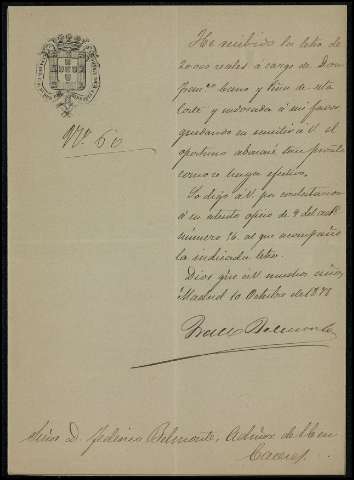 Nº. 60
He recibido la letra de
20.000 reales á cargo de Don
Fran.co y hijos de esta
Corte y endosada á mi favor
quedando en remitir á V. el
oportuno abonaré tan pronto
como se haga efectiva.
Lo digo á V. por contestacion
á su atento oficio de 9 del act.l
número 76 al que acompaña
la indicada letra.
Dios gue. á V. muchos años.
Madrid 10 Octubre de 1878
Belmonte
Señor D. Federico Belmonte, Admor. de en
Caceres.